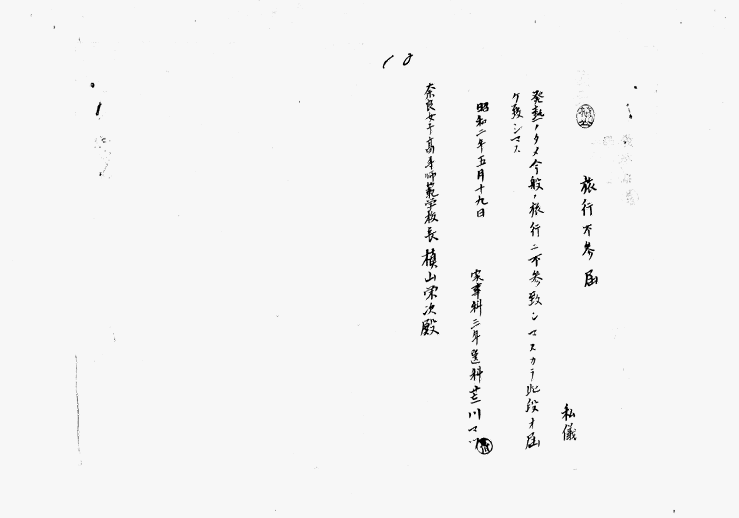 旅行不参届
私儀
発熱ノタメ今般ノ旅行ニ不参致シマスカラ此段オ届
ケ致シマス
昭和二年五月十九日
家事科三年選科 川マツ
奈良女子高等師範学校長 槙山栄次殿